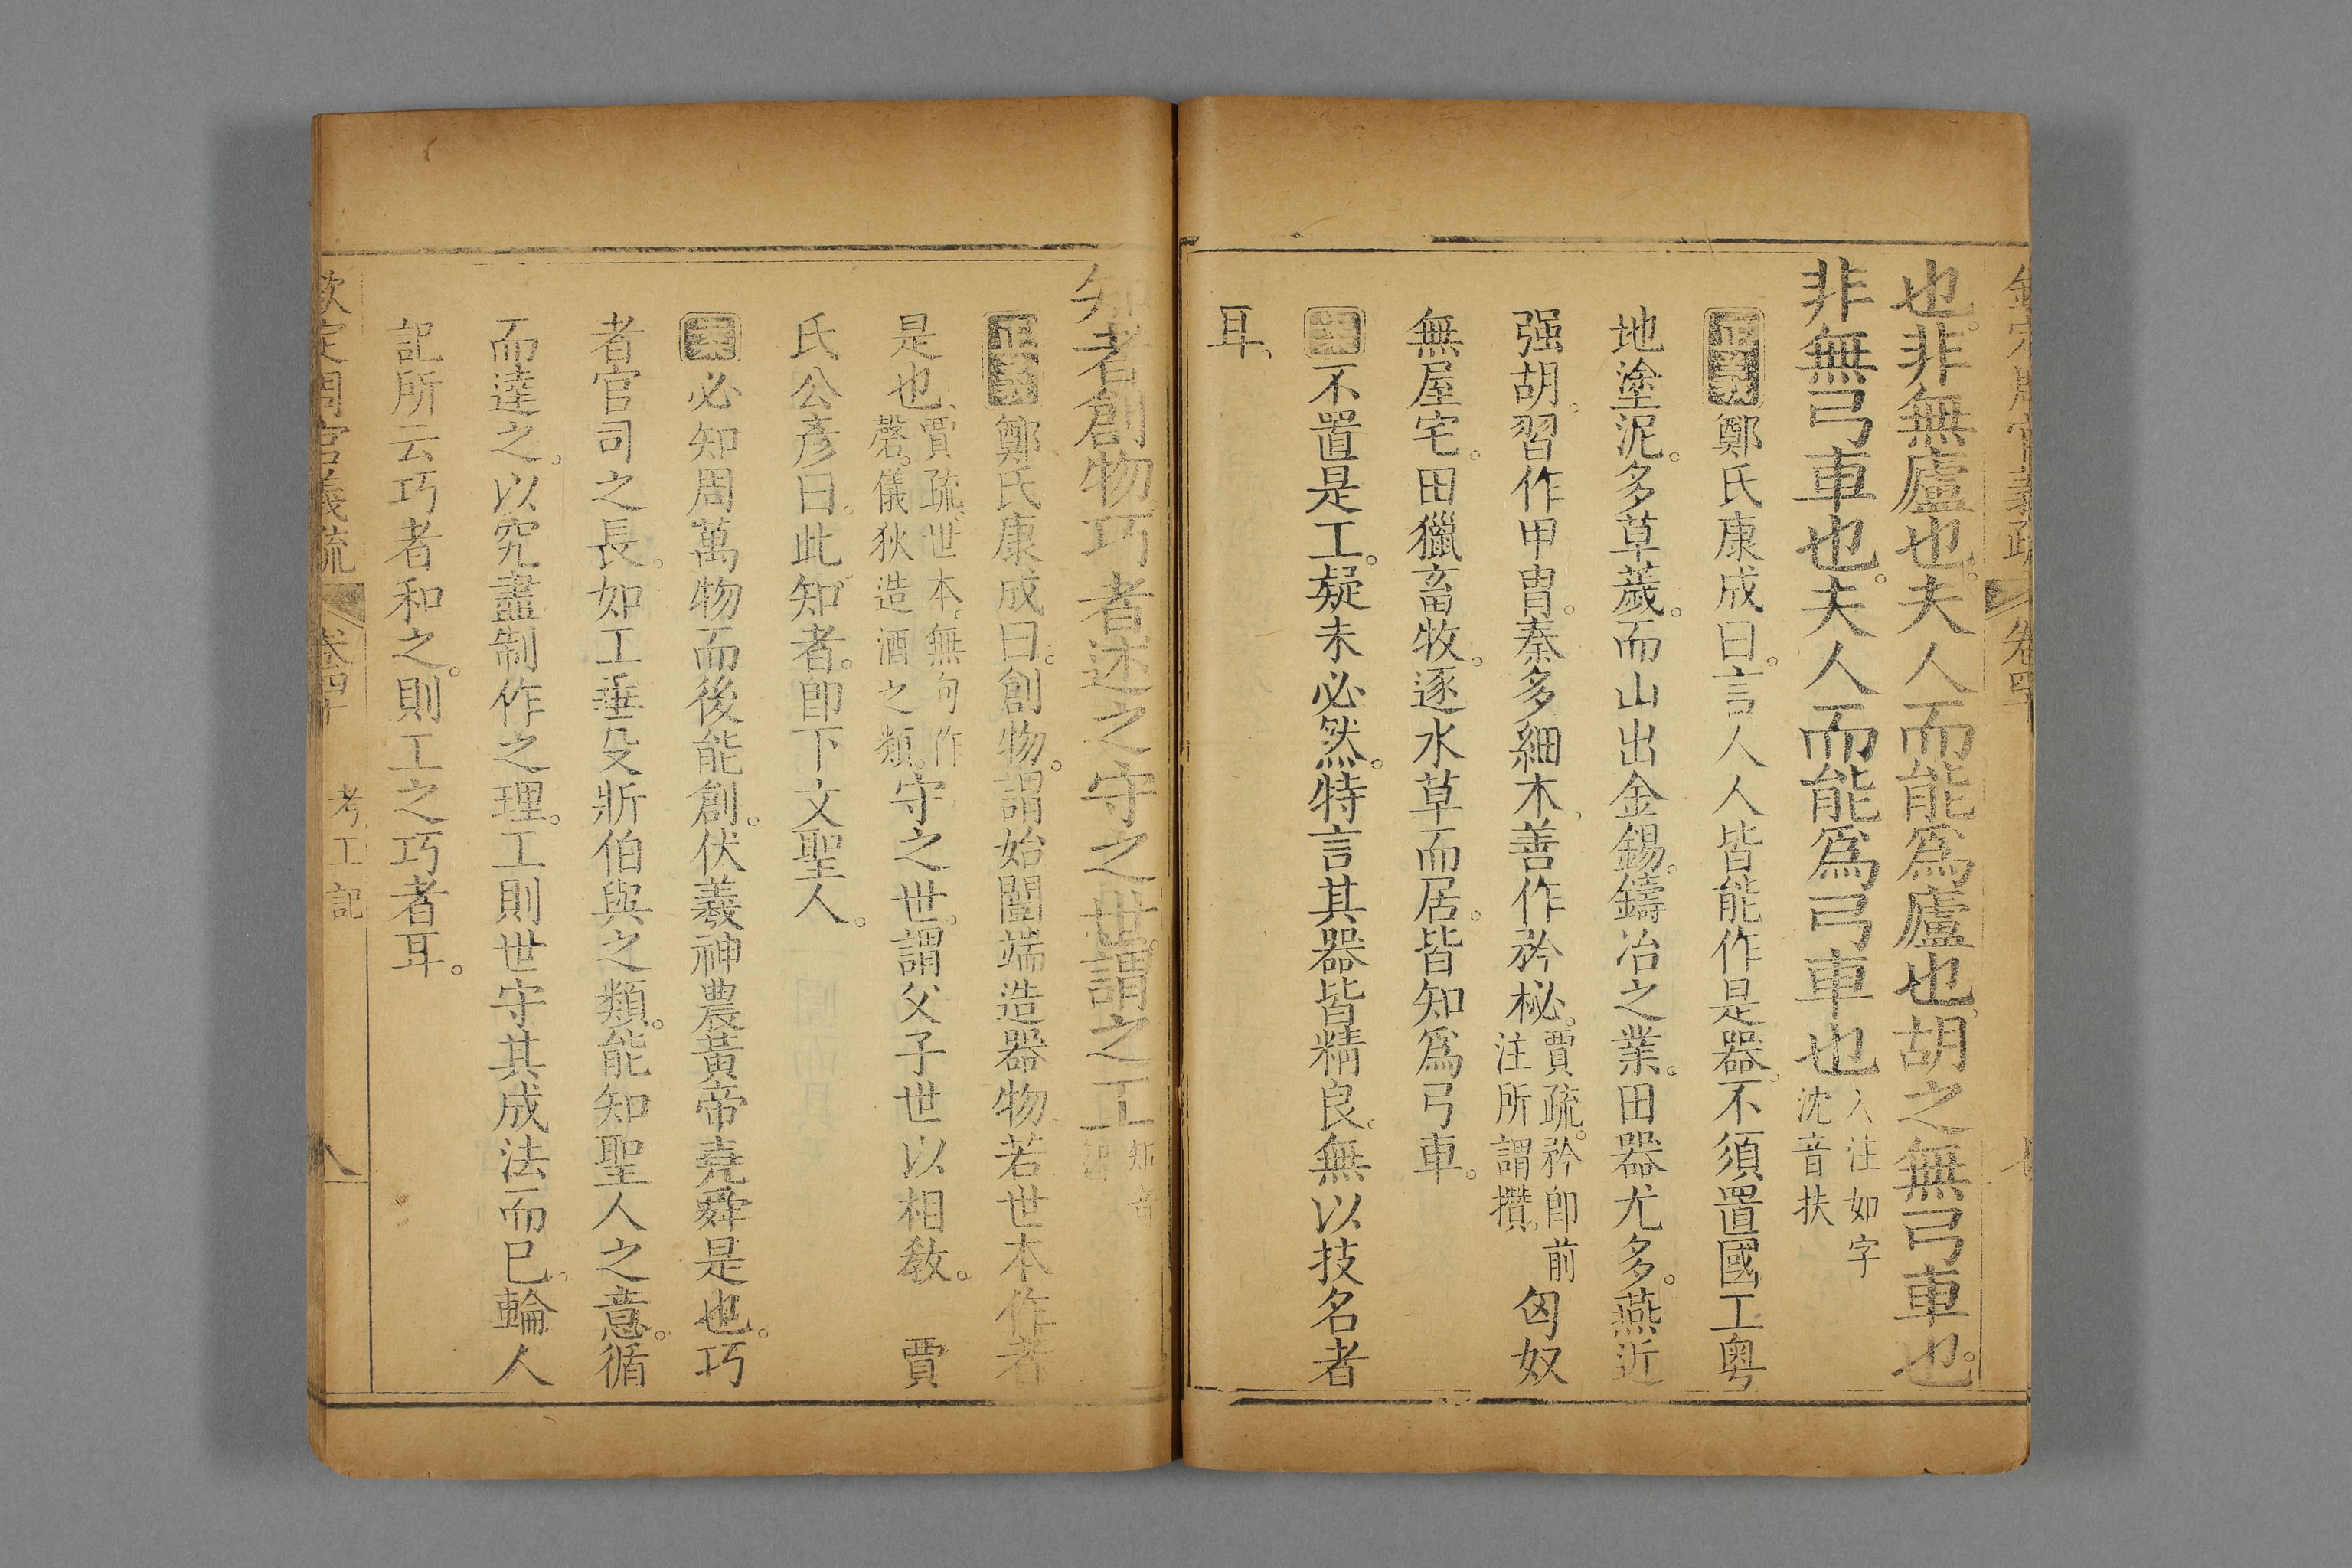 欽定周官義疏 卷四十
也。非無廬也。夫人而能爲廬也。胡之無弓車也。
非無弓車也。夫人而能爲弓車也 入注如字沈音扶
正義 鄭氏康成曰。言人人皆能作是器。不須置國工粵
地塗泥。多草薉。而山出金錫。鑄冶之業。田器尤多。燕近
强胡。習作甲冑。秦多細木、善作矜柲。賈疏。矜卽前注所謂攢。匈奴
無屋宅。田獵畜牧。逐水草而居。皆知爲弓車。
不置是工。疑未必然。特言其器皆精良。無以技名者
耳、
知者創物巧者述之守之世。謂之工 知者
正義 鄭氏康成曰。創物。謂始闓端造器物。若世本作者
是也、賈疏。世本。無句作磬。儀狄造酒之類。守之世。謂父子世以相敎。 賈
氏公彥曰。此知者。卽下文聖人。
必知周萬物而後能創。伏羲神農黃帝堯舜是也。巧
者官司之長。如工垂殳斨伯與之類。能知聖人之意。循
而達之。以究盡制作之理。工則世守其成法而已。輪人
記所云巧者和之。則工之巧者耳。
欽定周官義疏 卷四十 考工記 八